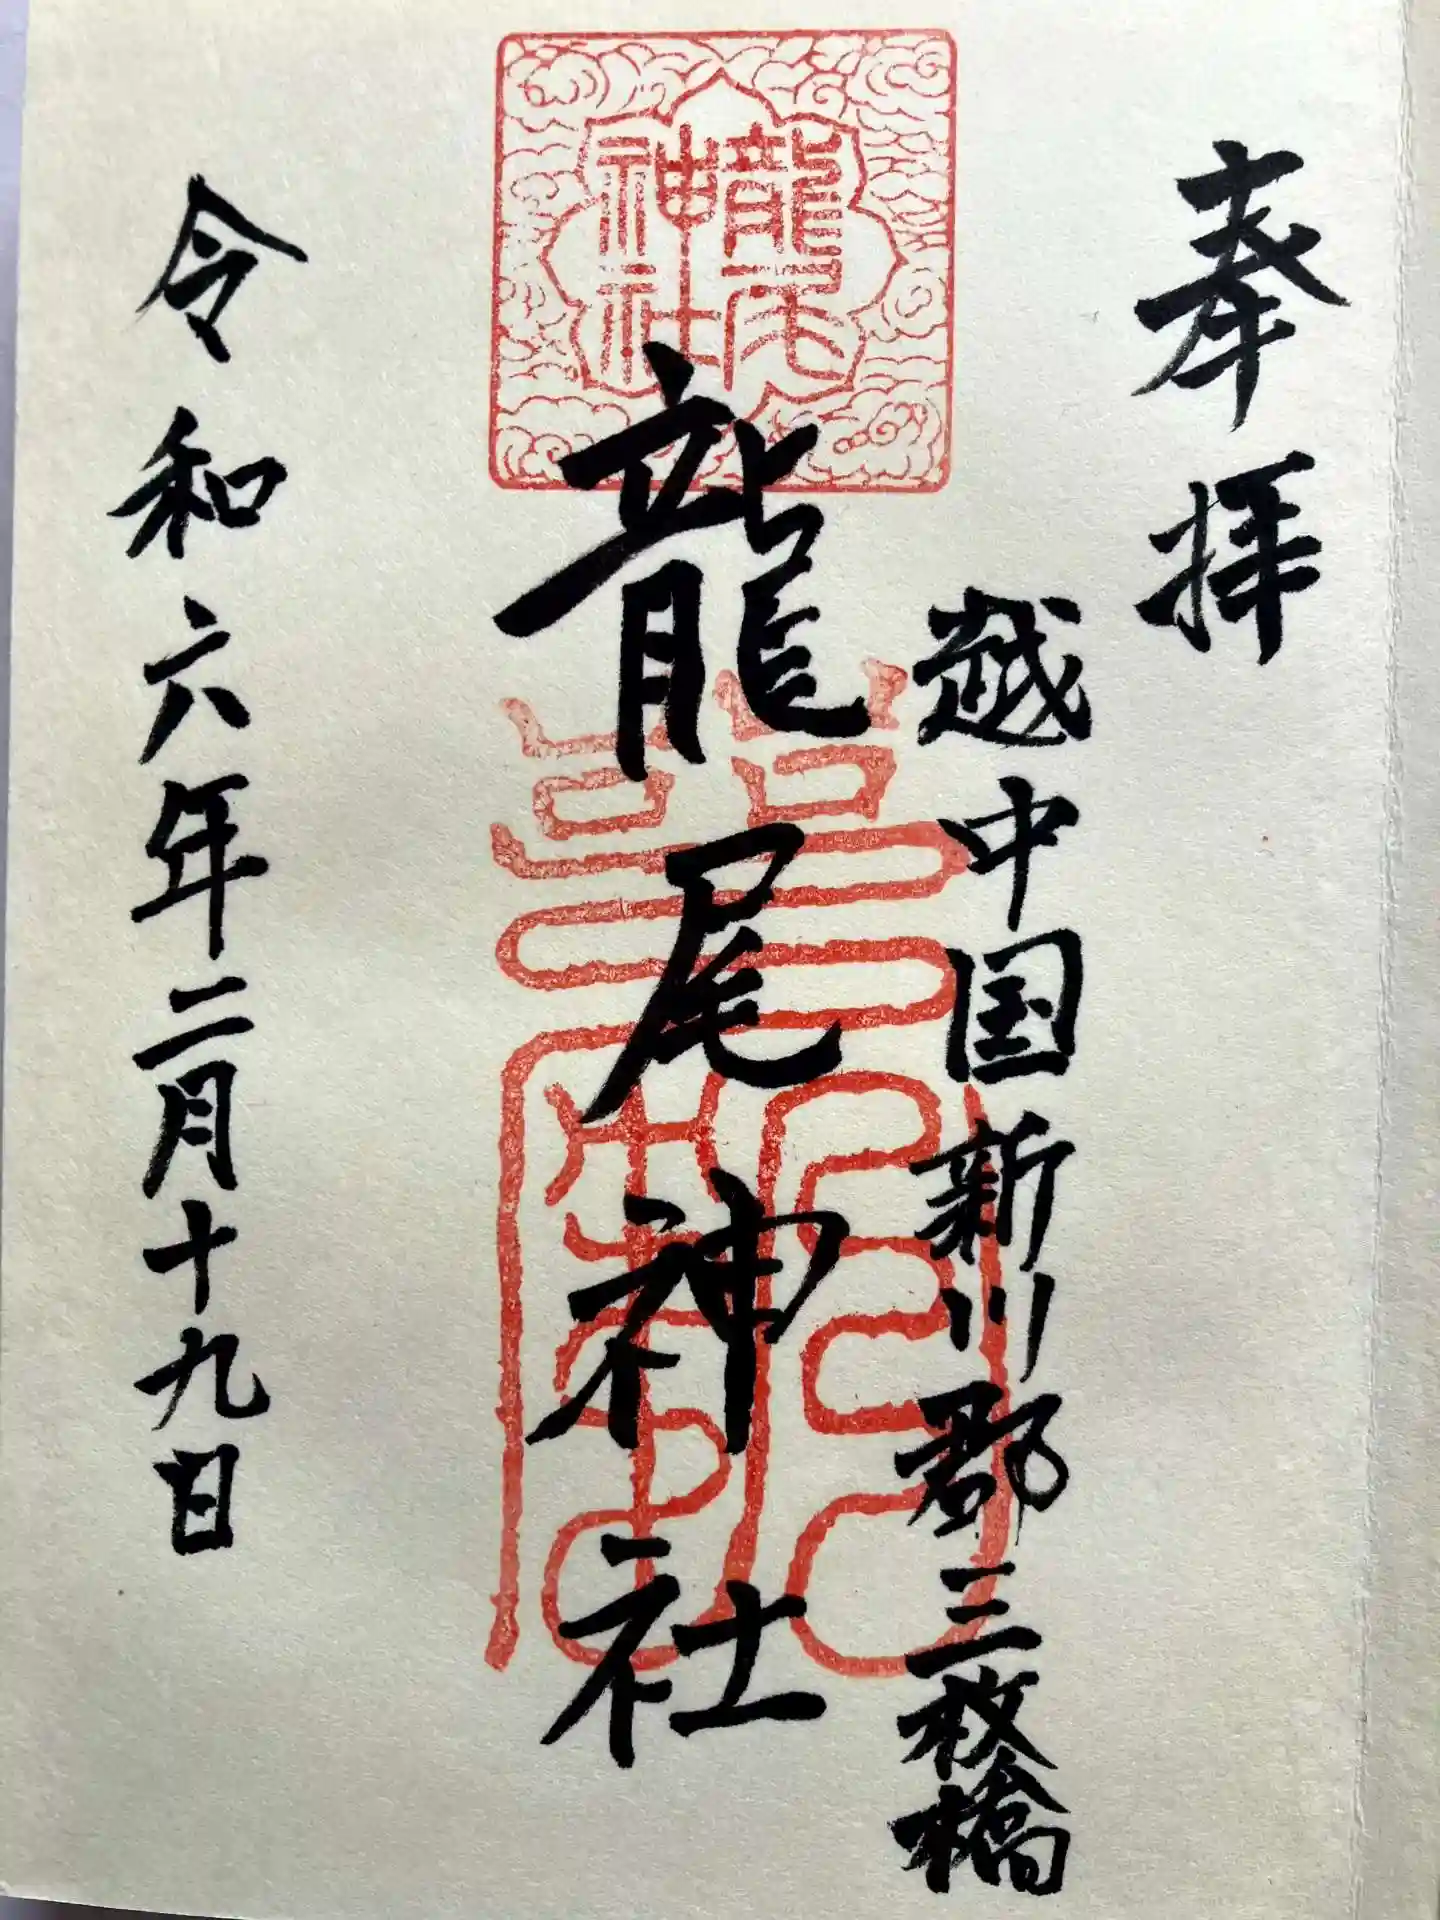 奉拝
越中国新川郡三枚橋
龍尾神社
龍尾
神社
令和六年二月十九日